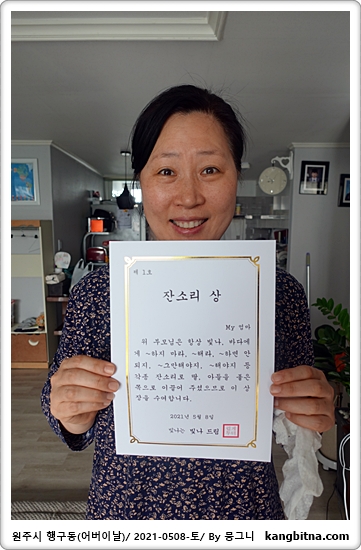 제 1호
잔소리 상
My 엄마
위 부모님은 항상 빛나, 바다에
게 ~하지 마라, ~해라, ~하면 안
되지, ~그만해야지, ~해야지 등
각종 잔소리로 딸, 아들을 옳은
쪽으로 이끌어 주셨으므로 이 상
장을 수여합니다.
2021년 5월 8일
빛나는 빛나 드림
원주시 행구동(어버이날)/ 2021-0508-토/ By 몽그니 kangbitna.com